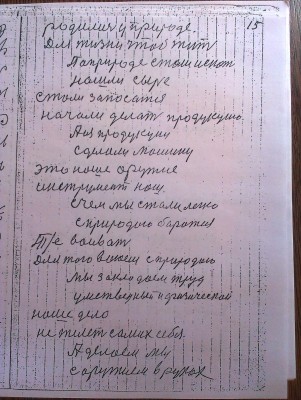 15
родилис у природе.
Для жизни чтоб жит
А природе стали искат
нашли сыре
стали запосатся
начали делат продукцию.
А из продукции
сделали машину
это наше оружие
инструмент наш.
С чем мы стали легко
с природою баротся
Т/е воеват
Для того воюем с природою
мы закладаем труд
умственый и физической
наше дело
не жалет самих себя.
А делаем мы
с оружием в руках